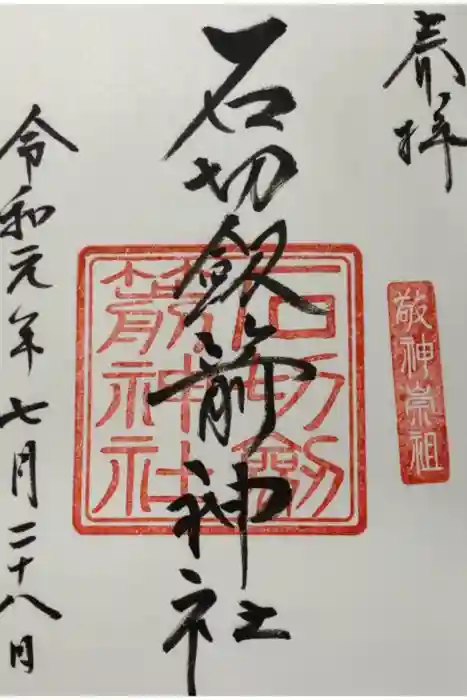 奉拝
敬神崇祖
石切劔箭神社
石切劔
箭神社
令和元年七月二十八日